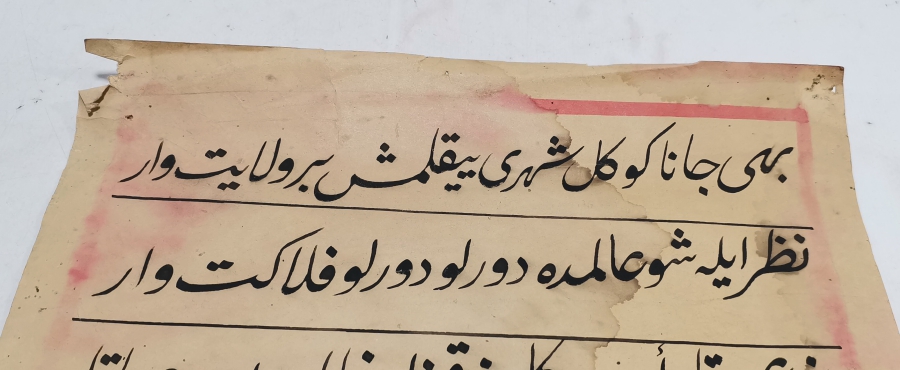 بهی جانا کوکل شهری ییقلمش بر ولایت وار
نظر ایله شو عالمده دورلو دورلو فلاکت وار